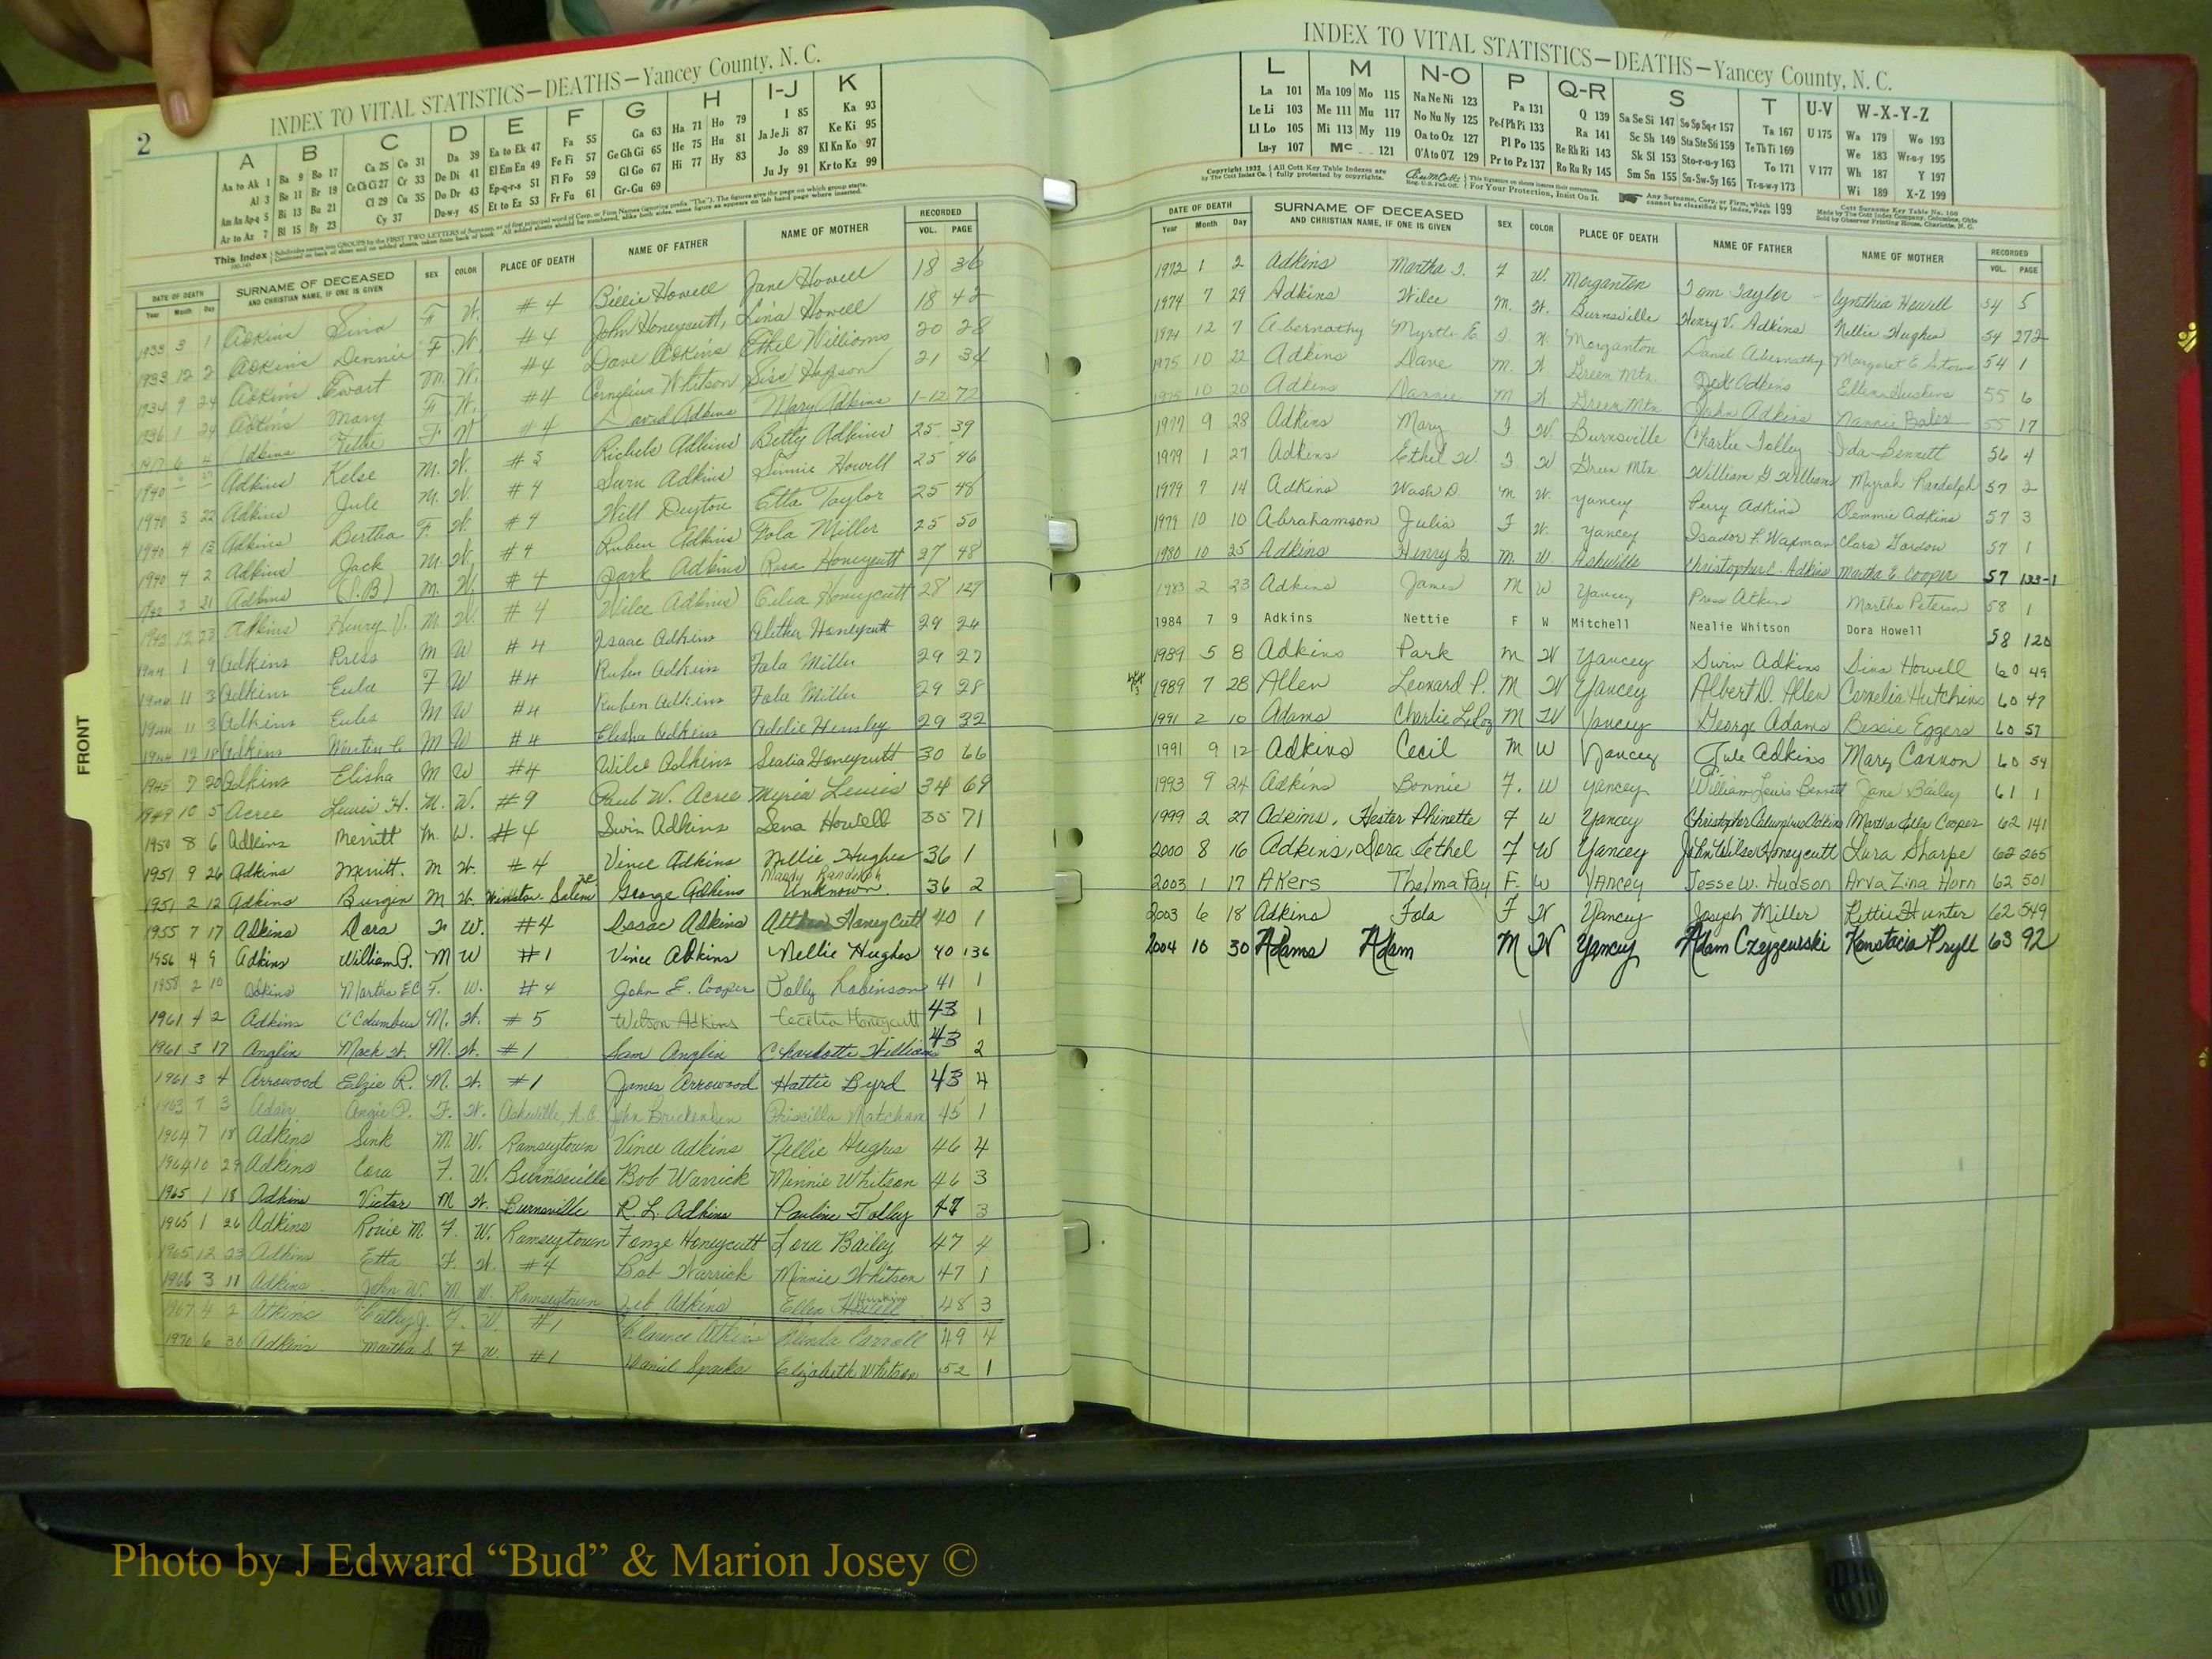 2
INDEX TO VITAL STATISTICS—DEATHS—Yancey County, N. C.
A B C D E F G H I-J K
Aa to Ak 1 Ba 9 Bo 17 Ca 25 Co 31 Da 39 Ea to Ek 47 Fa 55 Ga 63 Ha 71 Ho 79 I 85 Ka 93
Al 3 Be 11 Br 19 Ce Ch Ci 27 Cr 33 De Di 41 El Em En 49 Fe Fi 57 Ge Gh Gi 65 He 75 Hu 81 Ja Je Ji 87 Ke Ki 95
Am An Ap-q 5 Bi 13 Bu 21 Cl 29 Cu 35 Do Dr 43 Ep-q-r-s 51 Fl Fo 59 Gl Go 67 Hi 77 Hy 83 Jo 89 Kl Kn Ko 97
Ar to Az 7 Bl 15 By 23 Cy 37 Du-w-y 45 Et to Ez 53 Fr Fu 61 Gr-Gu 69 Ju Jy 91 Kr to Kz 99
This Index
DATE OF DEATH SURNAME OF DECEASED SEX COLOR PLACE OF DEATH NAME OF FATHER NAME OF MOTHER RECORDED
Year Month Day AND CHRISTIAN NAME, IF ONE IS GIVEN VOL. PAGE
1933 3 1 Adkins Sina F W. #4 Billie Howell Jane Howell 18 36
1933 12 2 Adkins Dennie F W. #4 John Honeycutt, Lina Howell 18 42
1934 9 24 Adkins Ewart M. W. #4 Dave Adkins Ethel Williams 20 28
1936 1 24 Adkins Mary F W. #4 Cornelius Whitson Hopson 21 34
1917 6 4 Adkins F W #4 David Adkins Mary Adkins 1-12 72
1940 Adkins Kelse M. W. #3 Adkins Betty Adkins 25 39
1940 3 22 Adkins Jule M. W. #4 Swin Adkins Howell 25 46
1940 4 13 Adkins Bertha F. W. #4 Will Deyton Etta Taylor 25 48
1940 4 2 Adkins Jack M. W. #4 Ruben Adkins Fola Miller 25 50
1942 3 21 Adkins (J.B) M. W. #4 Park Adkins Rosa Honeycutt 27 48
1943 12 23 Adkins Henry V. M. W. #4 Wilce Adkins Celia Honeycutt 28 127
1944 1 9 Adkins Press M W #4 Isaac Adkins Alitha Honeycutt 29 24
1944 11 3 Adkins Eula F W #4 Ruben Adkins Fola Miller 29 27
1944 11 3 Adkins Eules M W #4 Ruben Adkins Fola Miller 29 28
1944 12 18 Adkins C M W #4 Elisha Adkins Addie Hensley 29 32
1945 7 20 Adkins Elisha M W #4 Wilce Adkins Sealia Honeycutt 30 66
1949 10 5 Acree Lewis H. M. W. #9 Paul W. Acree Myria Lewis 34 69
1950 8 6 Adkins Merritt M. W. #4 Swin Adkins Sena Howell 35 71
1951 9 26 Adkins Merritt. M W. #4 Vince Adkins Nellie Hughes 36 1
1951 2 12 Adkins Burgin M W. Winston-Salem George Adkins Unknown 36 2
1955 7 17 Adkins Dora F. W. #4 Issac Adkins Honeycutt 40 1
1956 4 9 Adkins William P. M W #1 Vince Adkins Nellie Hughes 40 136
1958 2 10 Adkins Martha E C F. W. #4 John E. Cooper Polly Robinson 41 1
1961 4 2 Adkins C Columbus M. W. #5 Wilson Adkins Cecelia Honeycutt 43 1
1961 3 17 Anglin Mack W. M. W. #1 Sam Anglin Charlotte William 43 2
1961 3 4 Arrowood R. M. W. #1 James Arrowood Hattie Byrd 43 4
1963 7 3 Adair Angie P. F. W. Asheville, N.C. John Priscilla Matcham 45 1
1964 7 18 Adkins Sink M. W. Ramseytown Vince Adkins Nellie Hughes 46 4
1964 10 29 Adkins Cora F. W. Burnsville Bob Warrick Minnie Whitson 46 3
1965 1 18 Adkins Victor M W. Burnsville R. L. Adkins Pauline Tolley 47 3
1965 1 26 Adkins Roxie M F. W. Ramseytown Fonze Honeycutt Lora Bailey 47 4
1965 12 23 Adkins Etta F. W. #4 Bob Warrick Minnie Whitson 47 1
1966 3 11 Adkins John W. M W. Ramseytown Zeb Adkins Ellen 48 3
1967 4 2 Atkins Cathy J. F. W. #1 Clarence Atkins Linda Carroll 49 4
1970 6 30 Adkins Martha S F W. #1 Daniel Sparks Elizabeth Whitson 52 1
FRONT
INDEX TO VITAL STATISTICS—DEATHS—Yancey County, N. C.
L M N-O P Q-R S T U-V W-X-Y-Z
La 101 Ma 109 Mo 115 Na Ne Ni 123 Pa 131 Q 139 Sa Se Si 147 So Sp Sq-r 157 Ta 167 U 175 Wa 179 Wo 193
Le Li 103 Me 111 Mu 117 No Nu Ny 125 Pe-f Ph Pi 133 Ra 141 Sc Sh 149 Sta Ste Sti 159 Te Th Ti 169 We 183 Wr-u-y 195
Ll Lo 105 Mi 113 My 119 Oa to Oz 127 Pl Po 135 Re Rh Ri 143 Sk Sl 153 Sto-r-u-y 163 To 171 V 177 Wh 187 Y 197
Lu-y 107 Mc 121 O'A to O'Z 129 Pr to Pz 137 Ro Ru Ry 145 Sm Sn 155 Su-Sw-Sy 165 Tr-u-w-y 173 Wi 189 X-Z 199
Copyright 1932 by The Cott Index Co. All Cott Key Table Indexes are fully protected by copyrights. For Your Protection, Insist On It. Any Surname, Corp. or Firm, which cannot be classified by Index, Page 199
DATE OF DEATH SURNAME OF DECEASED SEX COLOR PLACE OF DEATH NAME OF FATHER NAME OF MOTHER RECORDED
Year Month Day AND CHRISTIAN NAME, IF ONE IS GIVEN VOL. PAGE
1972 1 2 Adkins Martha J. F W. Morganton Tom Taylor Cynthia Howell 54 5
1974 7 29 Adkins Wilce M. W. Burnsville Henry V. Adkins Nellie Hughes 54 272
1974 12 7 Abernathy Myrtle E. F. W. Morganton David Abernathy Margaret E. Stowe 54 1
1975 10 22 Adkins Dave M. W Green Mtn. Zeb Adkins Ellen Huskins 55 6
1975 10 20 Adkins Nannie M W. Green Mtn John Adkins Nannie 55 17
1977 9 28 Adkins Mary F W. Burnsville Charlie Tolley Ida Bennett 56 4
1979 1 27 Adkins Ethel W F. W Green Mtn. William G Williams Myrah Randolph 57 2
1979 7 14 Adkins Wash D. M W. Yancey Perry Adkins Demmie Adkins 57 3
1979 10 10 Abrahamson Julia F W. Yancey Isador F. Waxman Clara Gordon 57 1
1980 10 25 Adkins Henry G M. W Asheville Christopher C. Adkins Martha E. Cooper 57 133-1
1983 2 23 Adkins James M W Yancey Press Atkins Martha Peterson 58 1
1984 7 9 Adkins Nettie F W Mitchell Nealie Whitson Dora Howell 58 120
1989 5 8 Adkins Park M W Yancey Swin Adkins Sina Howell 60 49
1989 7 28 Allen Leonard P. M W Yancey Albert D. Allen Cornelia Hutchins 60 47
1991 2 10 Adams Charlie LeRoy M W Yancey George Adams Bessie Eggers 60 57
1991 9 12 Adkins Cecil M W Yancey Jule Adkins Mary Cannon 60 54
1993 9 24 Adkins Bonnie F. W Yancey William Lewis Bennett Jane Bailey 61 1
1999 2 27 Adkins, Hester Phinette F W Yancey Christopher Columbus Adkins Martha Ella Cooper 62 141
2000 8 16 Adkins, Dora Ethel F W Yancey John Wilse Honeycutt Lura Sharpe 62 265
2003 1 17 Akers Thelma Fay F. W Yancey Jesse W. Hudson Arva Zina Horn 62 501
2003 6 18 Adkins Fola F W Yancey Joseph Miller Kittie Hunter 62 549
2004 10 30 Adams Adam M W Yancey Adam Czyzewski Konstacia Pryll 63 92
Photo by J Edward “Bud” & Marion Josey ©